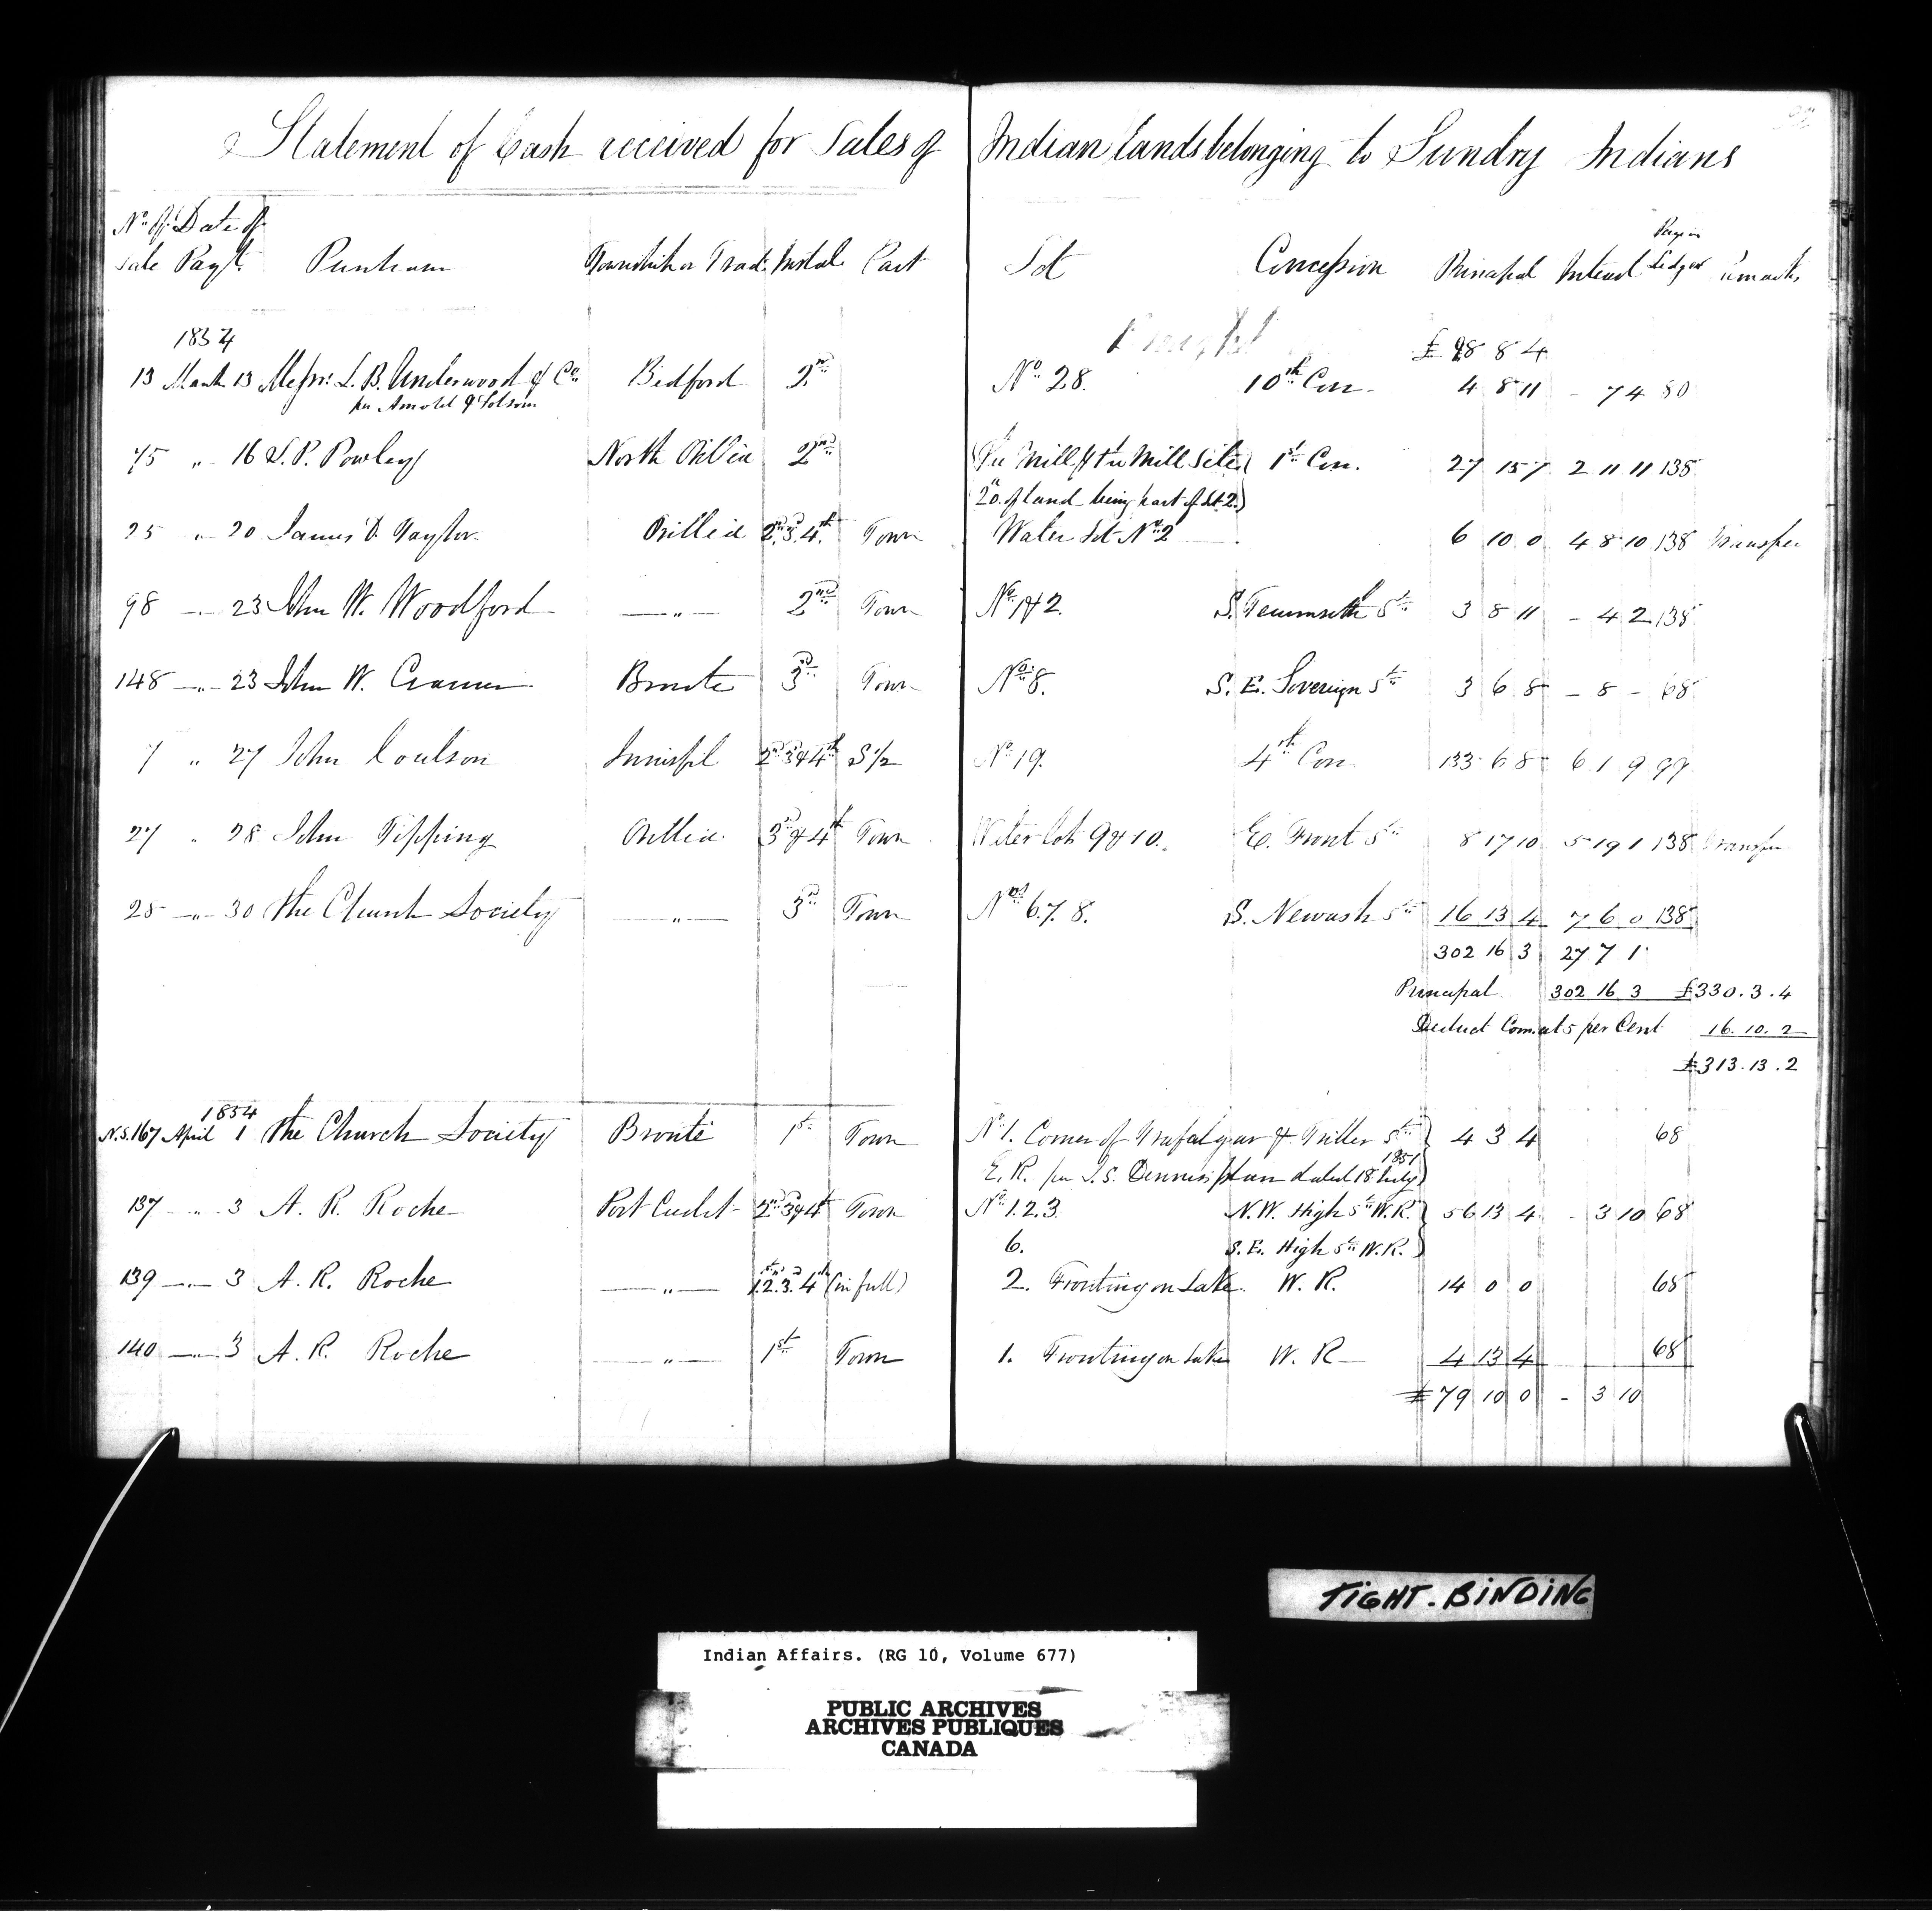 Statement of Cash received for Sales of Indian lands belonging to Sundry Indians
No. of Date of
Sale Payt. Township or Tract Instal. Part Lot Concession Principal Interest Page in Ledger Remarks
1854
£ 98 8 4
13 March 13 Messrs. L. B. Underwood & Co. Bedford 2nd No. 28. 10th Con. 4 8 11 - 7 4 80
per Arnold
75 " 16 S. P. Powley North Orillia 2nd Mill Mill Site 1st Con. 27 15 7 2 11 11 138
20 a. of land being part of Lot 2.
25 " 20 James D. Taylor Orillia 2nd 3d 4th Town Water Lot No. 2 6 10 0 4 8 10 138 Transfer
98 — " 23 John W. Woodford — " — 2nd Town No. 1 & 2. S. Tecumseth St. 3 8 11 - 4 2 138
148 — " — 23 John W. Cramer Bronte 3rd Town No. 8. S. E. Sovereign St. 3 6 8 - 8 - 68
7 " 27 John Coulson Innisfil 2nd 3d & 4th S 1/2 No. 19. 4th Con. 133 6 8 6 1 9 99
27 " 28 John Tipping Orillia 3rd & 4th Town Water lots 9 & 10. E. Front St. 8 17 10 5 19 1 138 Transfer
28 — " — 30 the Church Society — " — 3rd Town Nos. 6. 7. 8. S. Newash St. 16 13 4 7 6 0 138
302 16 3 27 7 1
Principal 302 16 3 £330. 3. 4
Deduct Com. at 5 per Cent 16. 10. 2
£313. 13. 2
1854
N.S. 167 April 1 the Church Society Bronté 1st Town No. 1. Corner of Trafalgar & Triller St. 4 3 4 68
E. R. per J. S. Dennis plan dated 18 July 1851
137 — " 3 A. R. Roche Port Credit 2nd 3 & 4th Town No. 1. 2. 3. N.W. High St. W.R. 56 13 4 - 3 10 68
6. S. E. High St. W.R.
139 — " — 3 A. R. Roche — " — 1. 2. 3. 4th (in full) 2. Fronting on Lake W. R. 14 0 0 68
140 — " — 3 A. R. Roche — " — 1st Town 1. Fronting on Lake W. R — 4 13 4 68
£79 10 0 - 3 10
TIGHT-BINDING
Indian Affairs. (RG 10, Volume 677)
PUBLIC ARCHIVES
ARCHIVES PUBLIQUES
CANADA